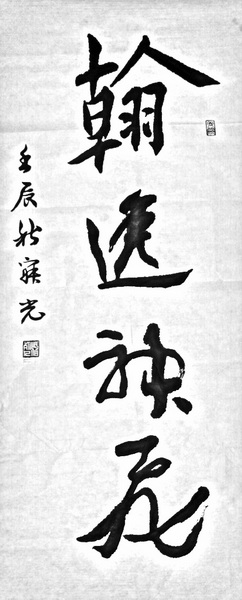 翰逸神飛
壬辰秋寐光